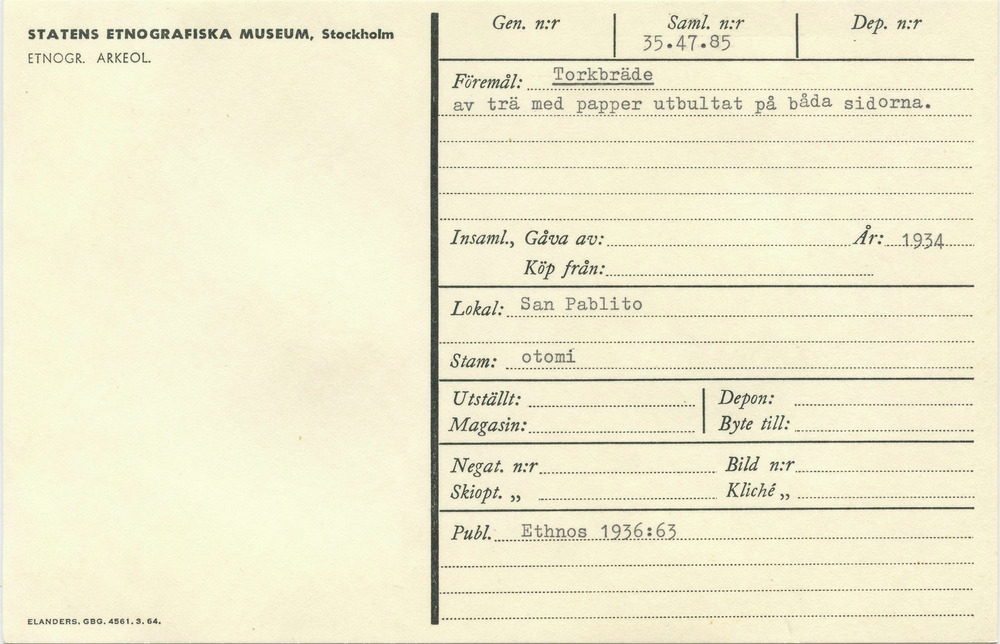 STATENS ETNOGRAFISKA MUSEUM, Stockholm
ETNOGR. ARKEOL.
Gen. n:r Saml. n:r Dep. n:r
35.47.85
Föremål: Torkbräde
av trä med papper utbultat på båda sidorna.
Insaml., Gåva av: År: 1934
Köp från:
Lokal: San Pablito
Stam: otomi
Utställt: Depon:
Magasin: Byte till:
Negat. n:r Bild n:r
Skiopt. „ Kliché „
Publ. Ethnos 1936:63
ELANDERS. GBG. 4561. 3. 64.